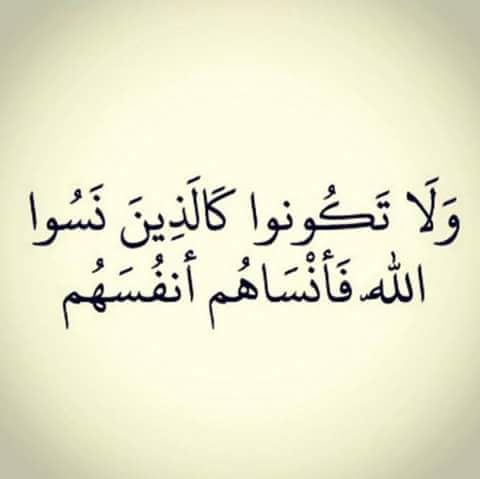 وَلَا تَكُونوا كَالَذِينَ نَسُوا
الله فَأنْسَاهُم أنفُسَهُم